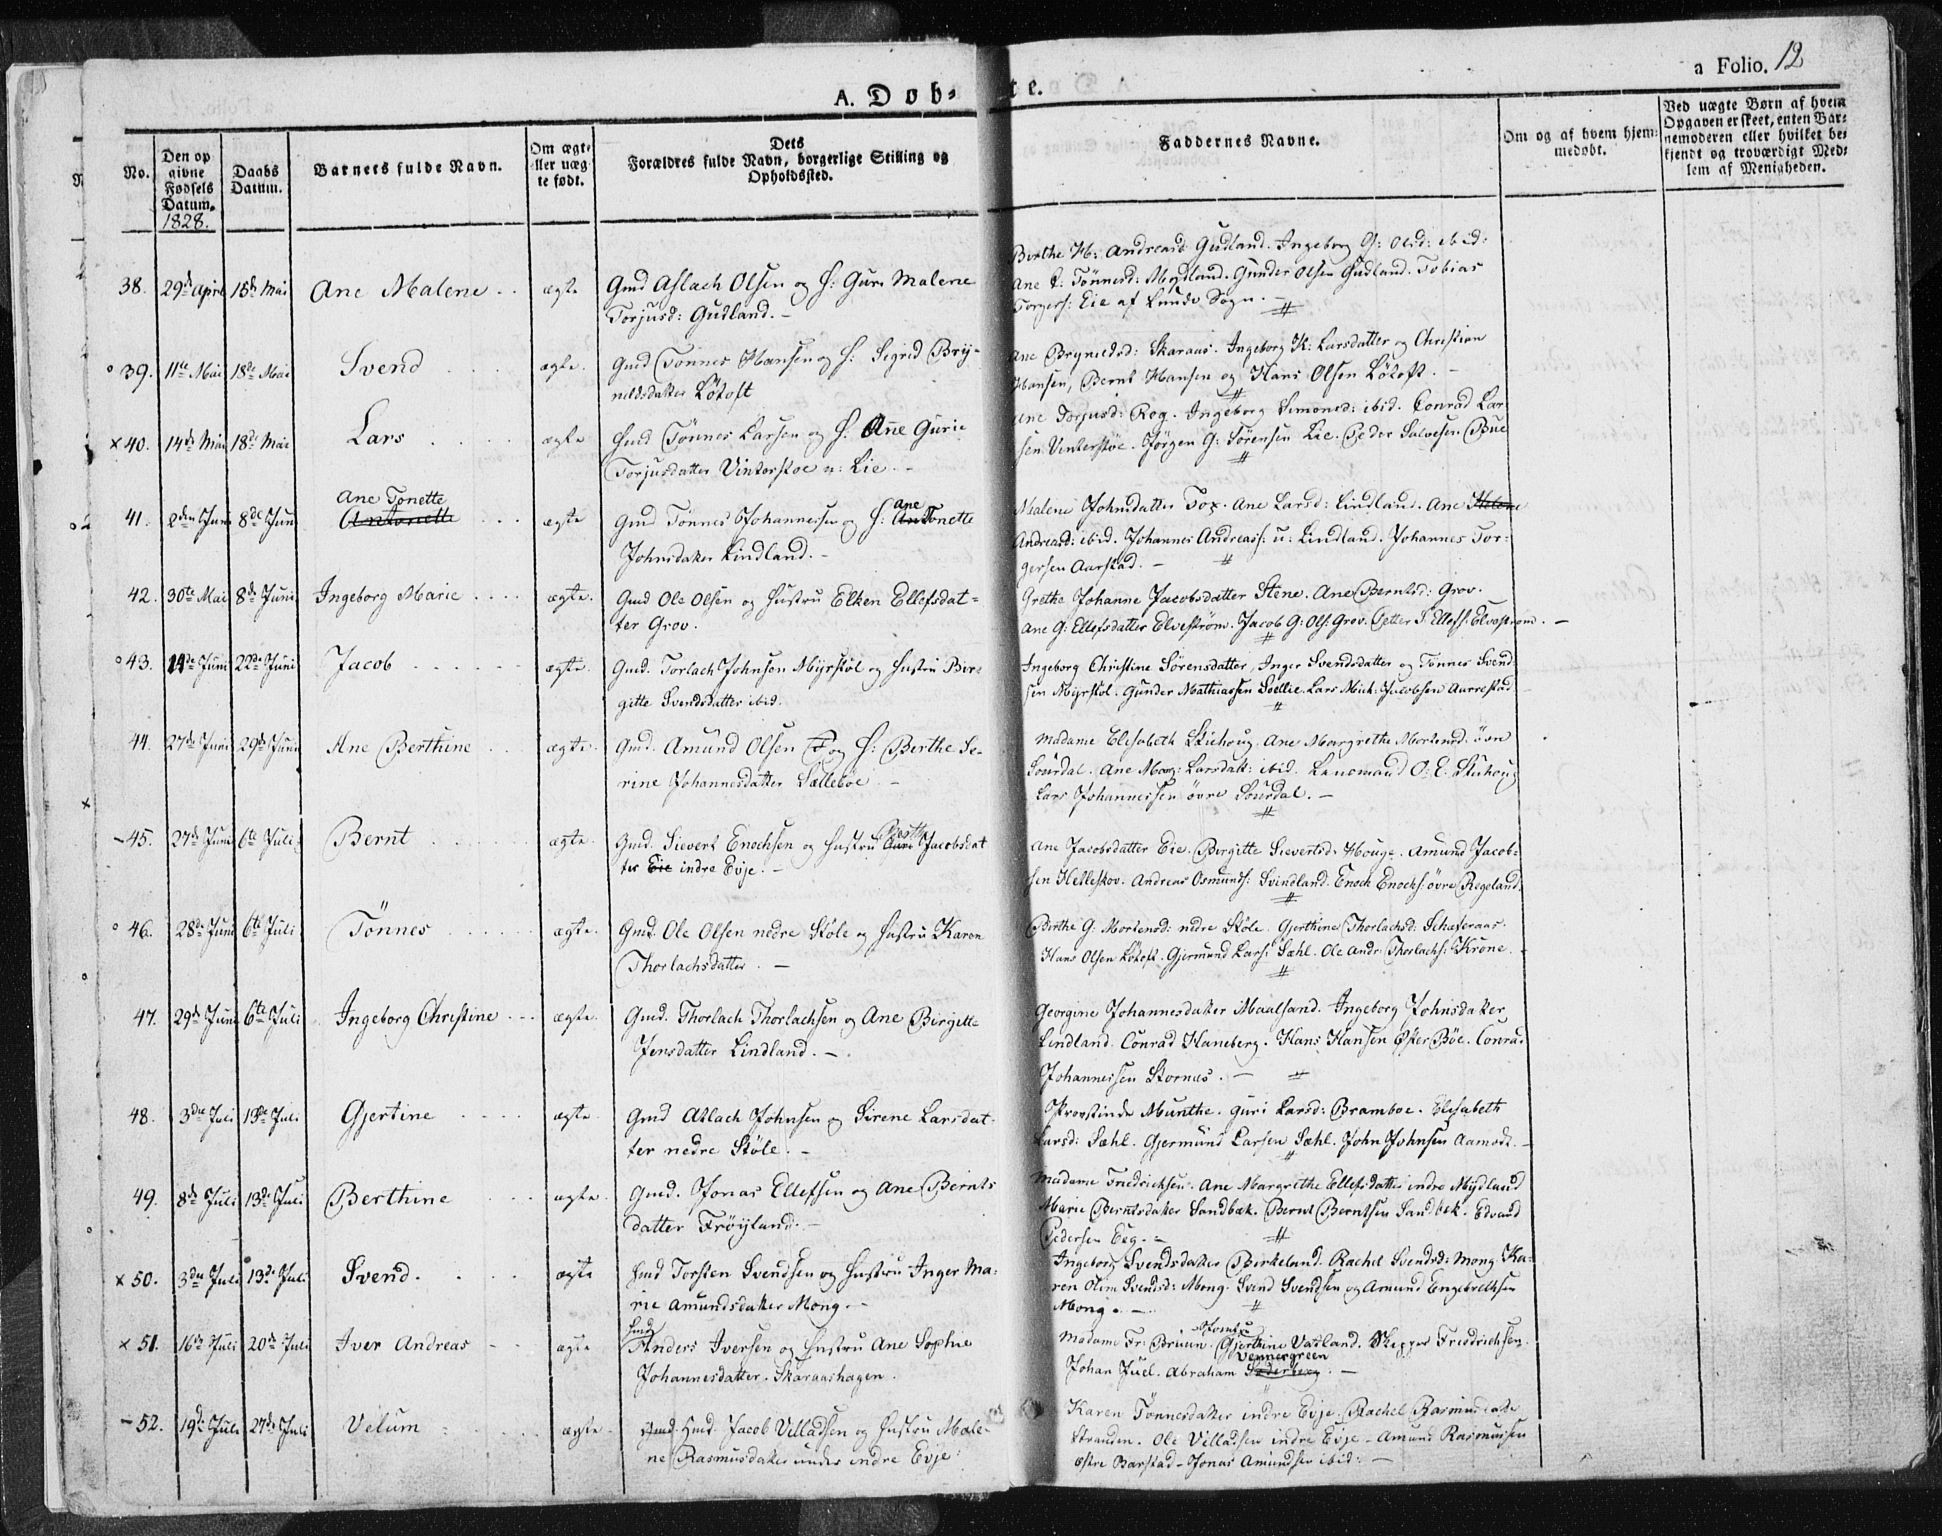 A. Døb-
te.
a Folio. 12
No.
Den op
givne
Fødsels
Datum.
1828.
Daabs
Datum.
Barnets fulde Navn.
Om ægte
eller uæg
te født.
Dets
Forældres fulde Navn, borgerlige Stilling og
Opholdssted.
Faddernes Navne.
Om og af hvem hjem-
medøbt.
Ved uægte Børn af hvem
Opgaven er skeet, enten Bar-
nemoderen eller hvilket be-
kjendt og troværdigt Med-
lem af Menigheden.
38. 29de April 18de Mai Ane Malene ægte
Gmd Aslach Olsen og H: Guri Malene
Torjusd: Gudland. -
Berthe H: Andreasd: Gudland. Ingeborg G: Olsd: ibid:
Ane E: Tønnesd: Mydland. Gunder Olsen Gudland. Tobias
Torgers: Eie af Lunde Sogn. -
39. 11te Mai 18de Mai Svend ægte.
Gmd Tønnes Hansen og H: Sigrid Bry-
nildsdatter Løtoft
Ane Brynildsd: Skaraas. Ingeborg K: Larsdatter og Christian
Hansen, Bernt Hansen og Hans Olsen Løtoft. -
x 40. 14de Mai 18de Mai Lars ægte
Hmd Tønnes Larsen og H: Ane Gurie
Torjusdatter Vinterstøe u: Lie. -
Ane Torjusd: Reg. Ingeborg Simonsd: ibid. Conrad Lar-
sen Vinterstøe. Jørgen G: Sørensen Lie. Peder Salvesen Bue
Ane Tonette
41. 2den Juni 8de Juni Antonette ægte
Ane
Gmd Tønnes Johannesen og H: Antonette
Johnsdatter Lindland. -
Malene Johnsdatter Tox. Ane Larsd: Lindland. Ane Helene
Andreasd: ibid. Johannes Andreass: u: Lindland. Johannes Tor-
gersen Aarstad. -
42. 30te Mai 8de Juni Ingeborg Marie ægte.
Gmd Ole Olsen og Hustru Elken Ellefsdat-
ter Grov.
Grethe Johanne Jacobsdatter Stene. Ane Berntsd: Grov.
Ane G: Ellefsdatter Elvestrøm. Jacob G: Ols: Grov. Petter S: Ellefs: Elvestrøm. -
43. 14de Juni 22de Juni Jacob ægte.
Gmd. Torlach Johnsen Myrstøl og Hustru Bir-
gitte Svendsdatter ibid.
Ingeborg Christine Sørensdatter, Inger Svendsdatter og Tønnes Svend-
sen Myrstøl. Gunder Mathiassen Soellie. Lars Mich: Jacobsen Aarrestad
44. 27de Juni 29de Juni Ane Berthine ægte.
Gmd. Amund Olsen F og H: Berthe Se-
rine Johannesdatter Sællebøe -
Madame Elisabeth Stuhoug. Ane Margrethe Mortensd: øvre
Sourdal. Ane Marg: Larsdatt: ibid. Lensmand O: E. Stuhoug
Lars Johannessen øvre Sourdal. -
- 45. 27de Juni 6te Juli Bernt ægte.
Berthe
Gmd. Sievert Enochsen og Hustru Guri Jacobsdat
ter Eie indre Evje. -
Ane Jacobsdatter Eie. Birgitte Sievertsd: Houge. Amund Jacob-
sen Helleskov. Andreas Osmunds: Svindland. Enoch Enochs: øvre Regeland.
46. 28de Juni 6te Juli Tønnes ægte.
Gmd. Ole Olsen nedre Støle og Hustru Karen
Thorlachsdatter. -
Birthe G: Mortensd: nedre Støle. Gjerthine Thorlachsd: Schaferaas.
Hans Olsen Løtoft. Gjermund Lars: Sæhl. Ole Andr: Thorlachs: Krone.
47. 29de Juni 6te Juli Ingeborg Christine ægte.
Gmd. Thorlach Thorlachsen og Ane Birgitte
Jensdatter Lindland. -
Georgine Johannesdatter Maalsand. Ingeborg Johnsdatter
Lindland. Conrad Haneberg. Hans Hansen Øster Bøe. Conrad
Johannesen Stornæs. -
48. 3die Juli 13de Juli Gjertine ægte
Gmd Atlach Johnsen og Sirene Larsdat-
ter nedre Støle. -
Provstinde Munthe. Guri Larsd: Bramboe. Elisabeth
Larsd: Sæhl. Gjermund Larsen Sæhl. John Johnsen Aamodt. -
49. 8de Juli 13de Juli Berthine ægte.
Gmd. Jonas Ellefsen og Ane Bernts
datter Frøyland. -
Madame Friedrichsen. Ane Margrethe Ellefsdatter indre Mydland
Marie Berntsdatter Sandbæk. Bernt Berntsen Sandbek. Edvard
Pedersen Eeg. -
x 50. 3die Juli 13de Juli Svend. ægte
Hmd Torsten Svendsen og Hustru Inger Ma-
rie Amundsdatter Mong. -
Ingeborg Svendsdatter Birkeland. Rachel Svendsd: Mong. Ka-
ren Olim Svendsd: Mong. Svend Svendsen og Amund Engebretsen
Mong. -
x 51. 16de Juli 20de Juli Iver Andreas ægte
Hmd
Anders Iversen og Hustru Ane Sophie
Johannesdatter. Skaraashagen.
Jomfru
Madame Fr: Bruun. Gjerthine Vatland. Skipper Friedrichsen.
Vennergreen
Johan Juel. Abraham Søderberg. -
- 52. 19de Juli 27de Juli Velum ægte.
Gmd Hmd Jacob Villadsen og Hustru Male-
ne Rasmusdatter under indre Evje.
Karen Tønnesdatter indre Evje. Rachel Rasmusdatter
Stranden. Ole Villadsen indre Evje - Amund Rasmussen
østre Barstad - Jonas Amundsen ibid: -